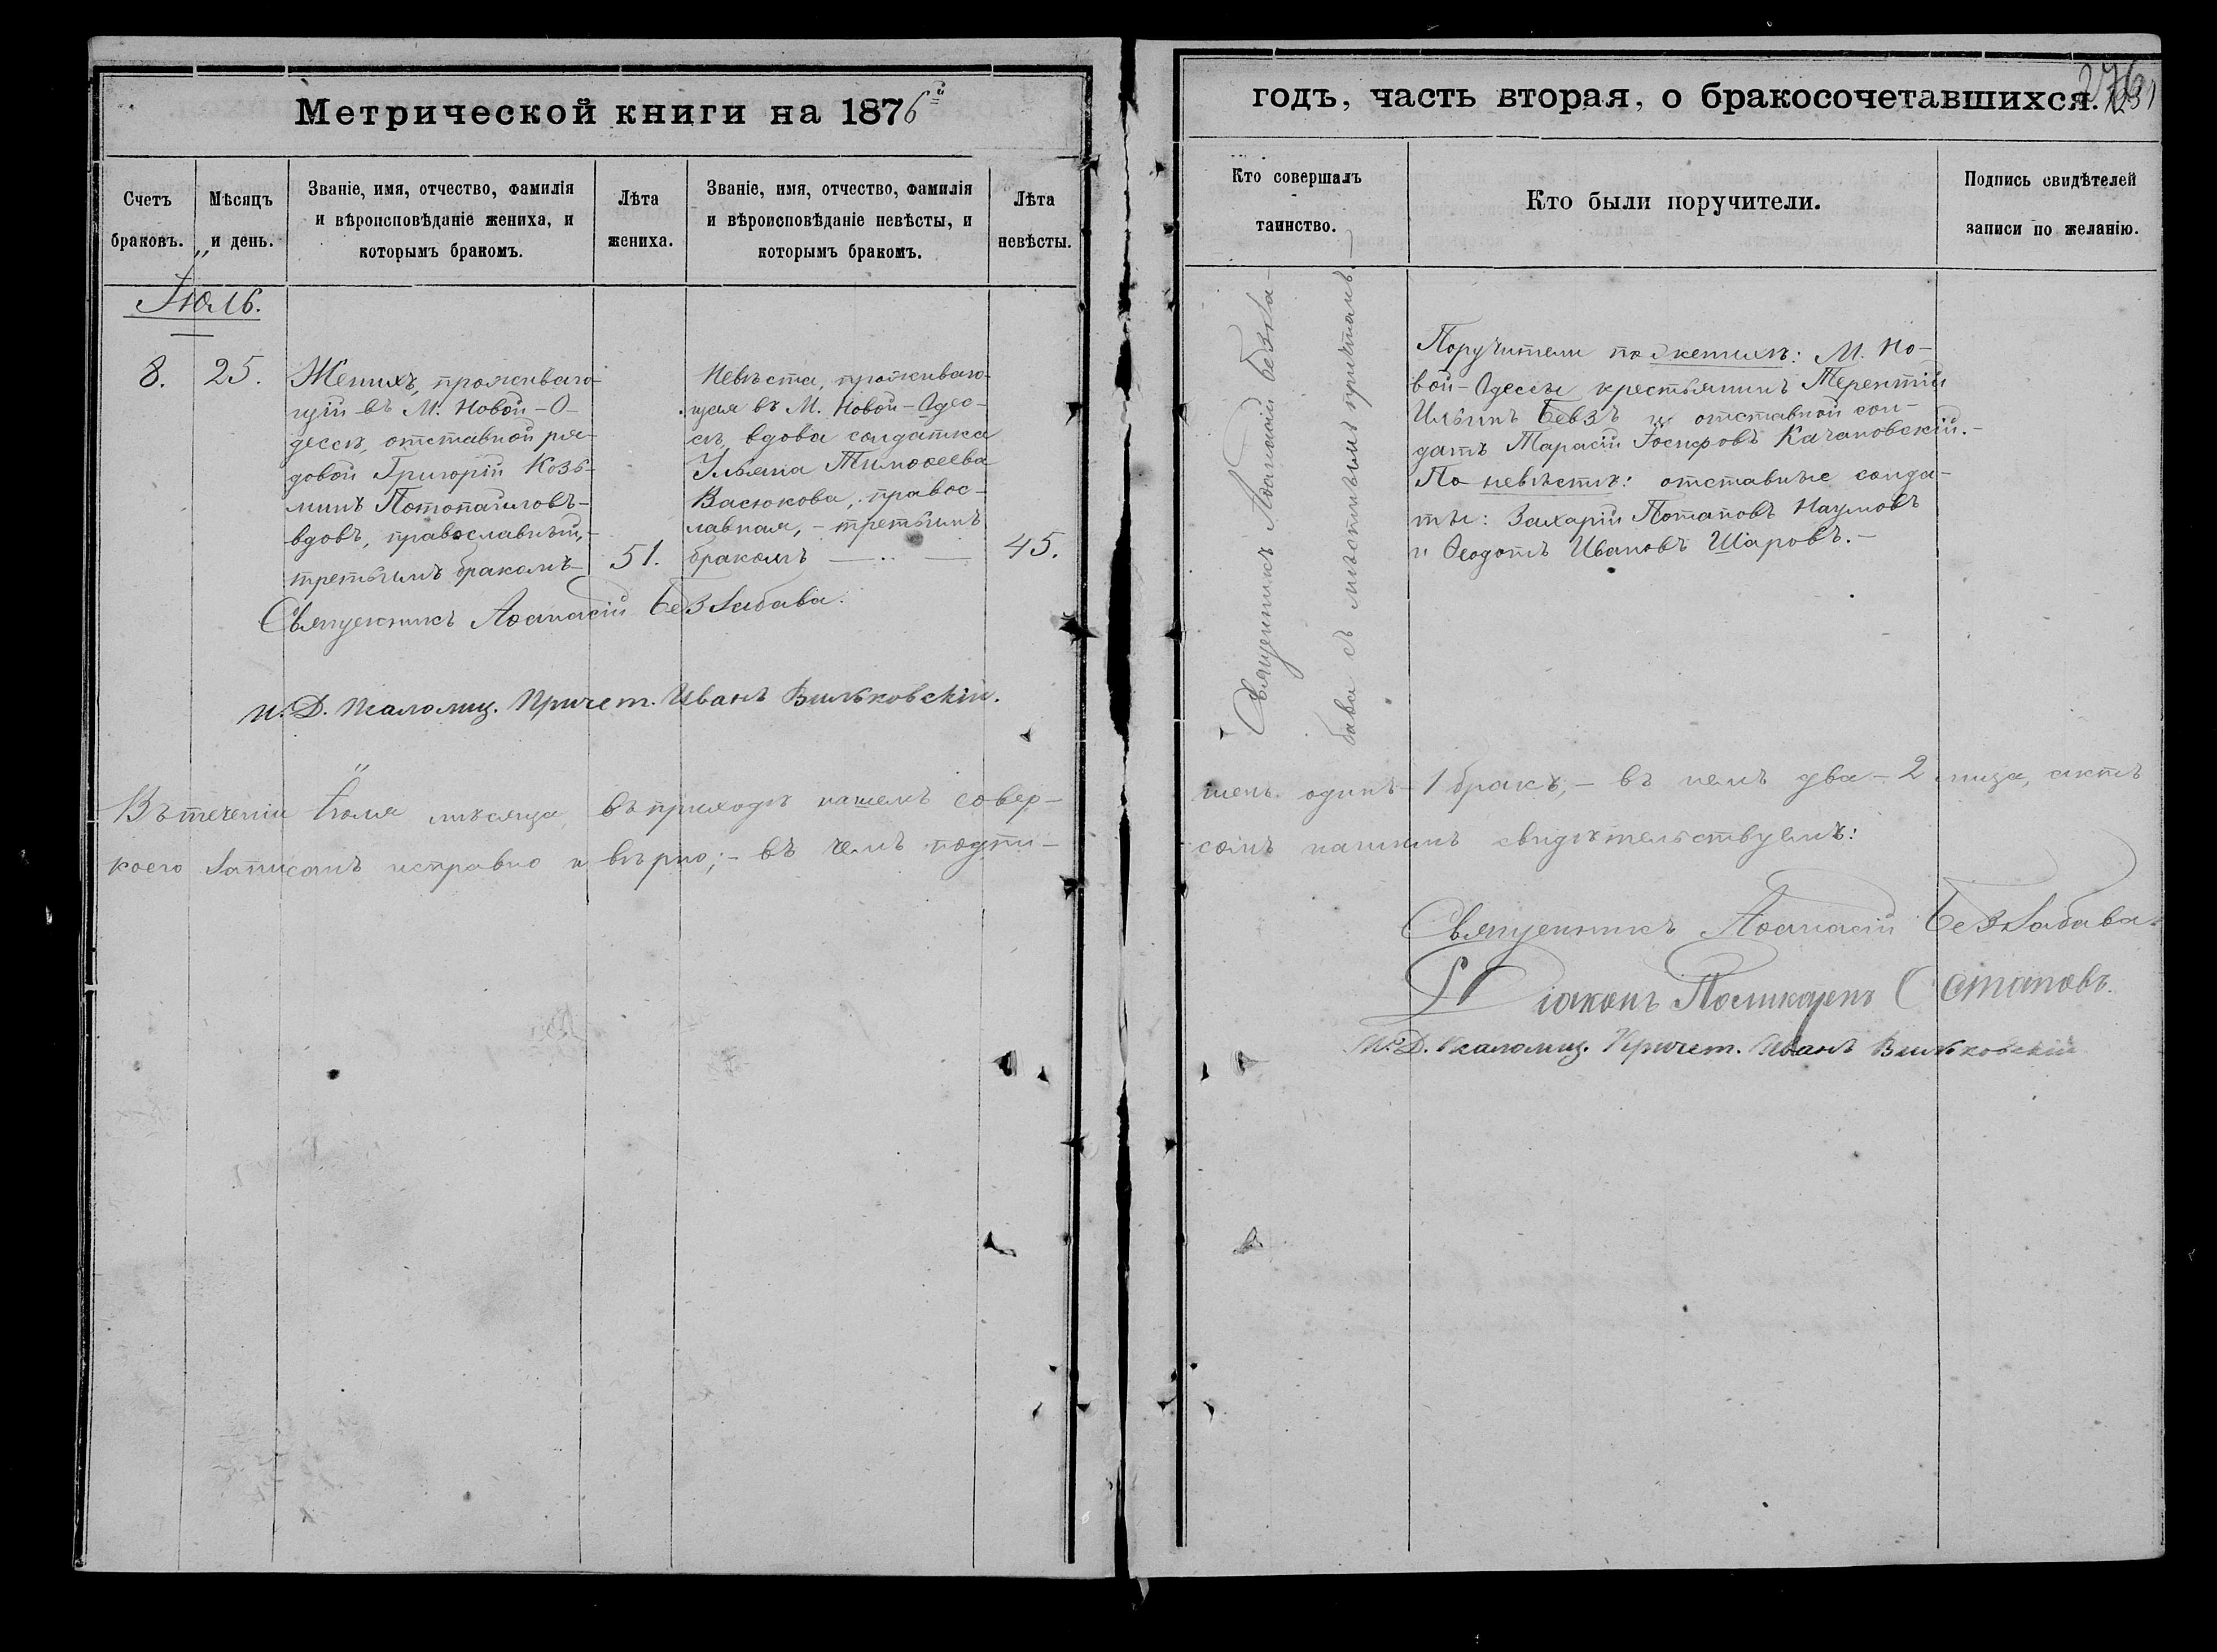 Метрической книги на 1876й
годъ, часть вторая, о бракосочетавшихся.
Счетъ браковъ.
Мѣсяцъ и день.
Званіе, имя, отчество, фамилія
и вѣроисповѣданіе жениха, и
которымъ бракомъ.
Лѣта жениха.
Званіе, имя, отчество, фамилія
и вѣроисповѣданіе невѣсты, и
которымъ бракомъ.
Лѣта невѣсты.
Кто совершалъ
таинство.
Кто были поручители.
Подпись свидѣтелей
записи по желанію.
Іюль.
8.
25.
Женихъ, проживаю-
щій въ М. Новой-О-
дессѣ, отставной ря-
довой Григорій Козь-
минъ
вдовъ, православный,-
третьимъ бракомъ-
51.
Невѣста, проживаю-
щая въ М. Новой-Одес-
сѣ, вдова солдатка
Ульяна Тимоѳеева
Васюкова, правос-
лавная, - третьимъ
бракомъ
45.
Священникъ Аѳанасій Беззаба-
бава съ мѣстнымъ причтамъ.
Поручители по женихѣ: М. Но-
вой-Одессы крестьянинъ Терентій
Ильинъ Бевзъ и отставной сол-
датъ Тарасій Іосифовъ Качановскій.-
По невѣстѣ: отставные солда-
ты: Захарій Потаповъ Наумовъ
и Ѳеодотъ Ивановъ Шаровъ.-
Священникъ Аѳанасій Беззабава.
И. Д. Псаломщ. Причет. Иванъ Вильковскій.
Въ теченіи Іюля мѣсяца, въ приходѣ нашемъ совер-
шенъ одинъ - 1 бракъ, - въ немъ два - 2 лица, актъ
коего записанъ исправно и вѣрно; - въ чемъ подпи-
сомъ нашимъ свидѣтельствуемъ:
Священникъ Аѳанасій Беззабава.
Діаконъ Поликарпъ Остаповъ.
И. Д. Псаломщ. Причет. Иванъ Вильковскій